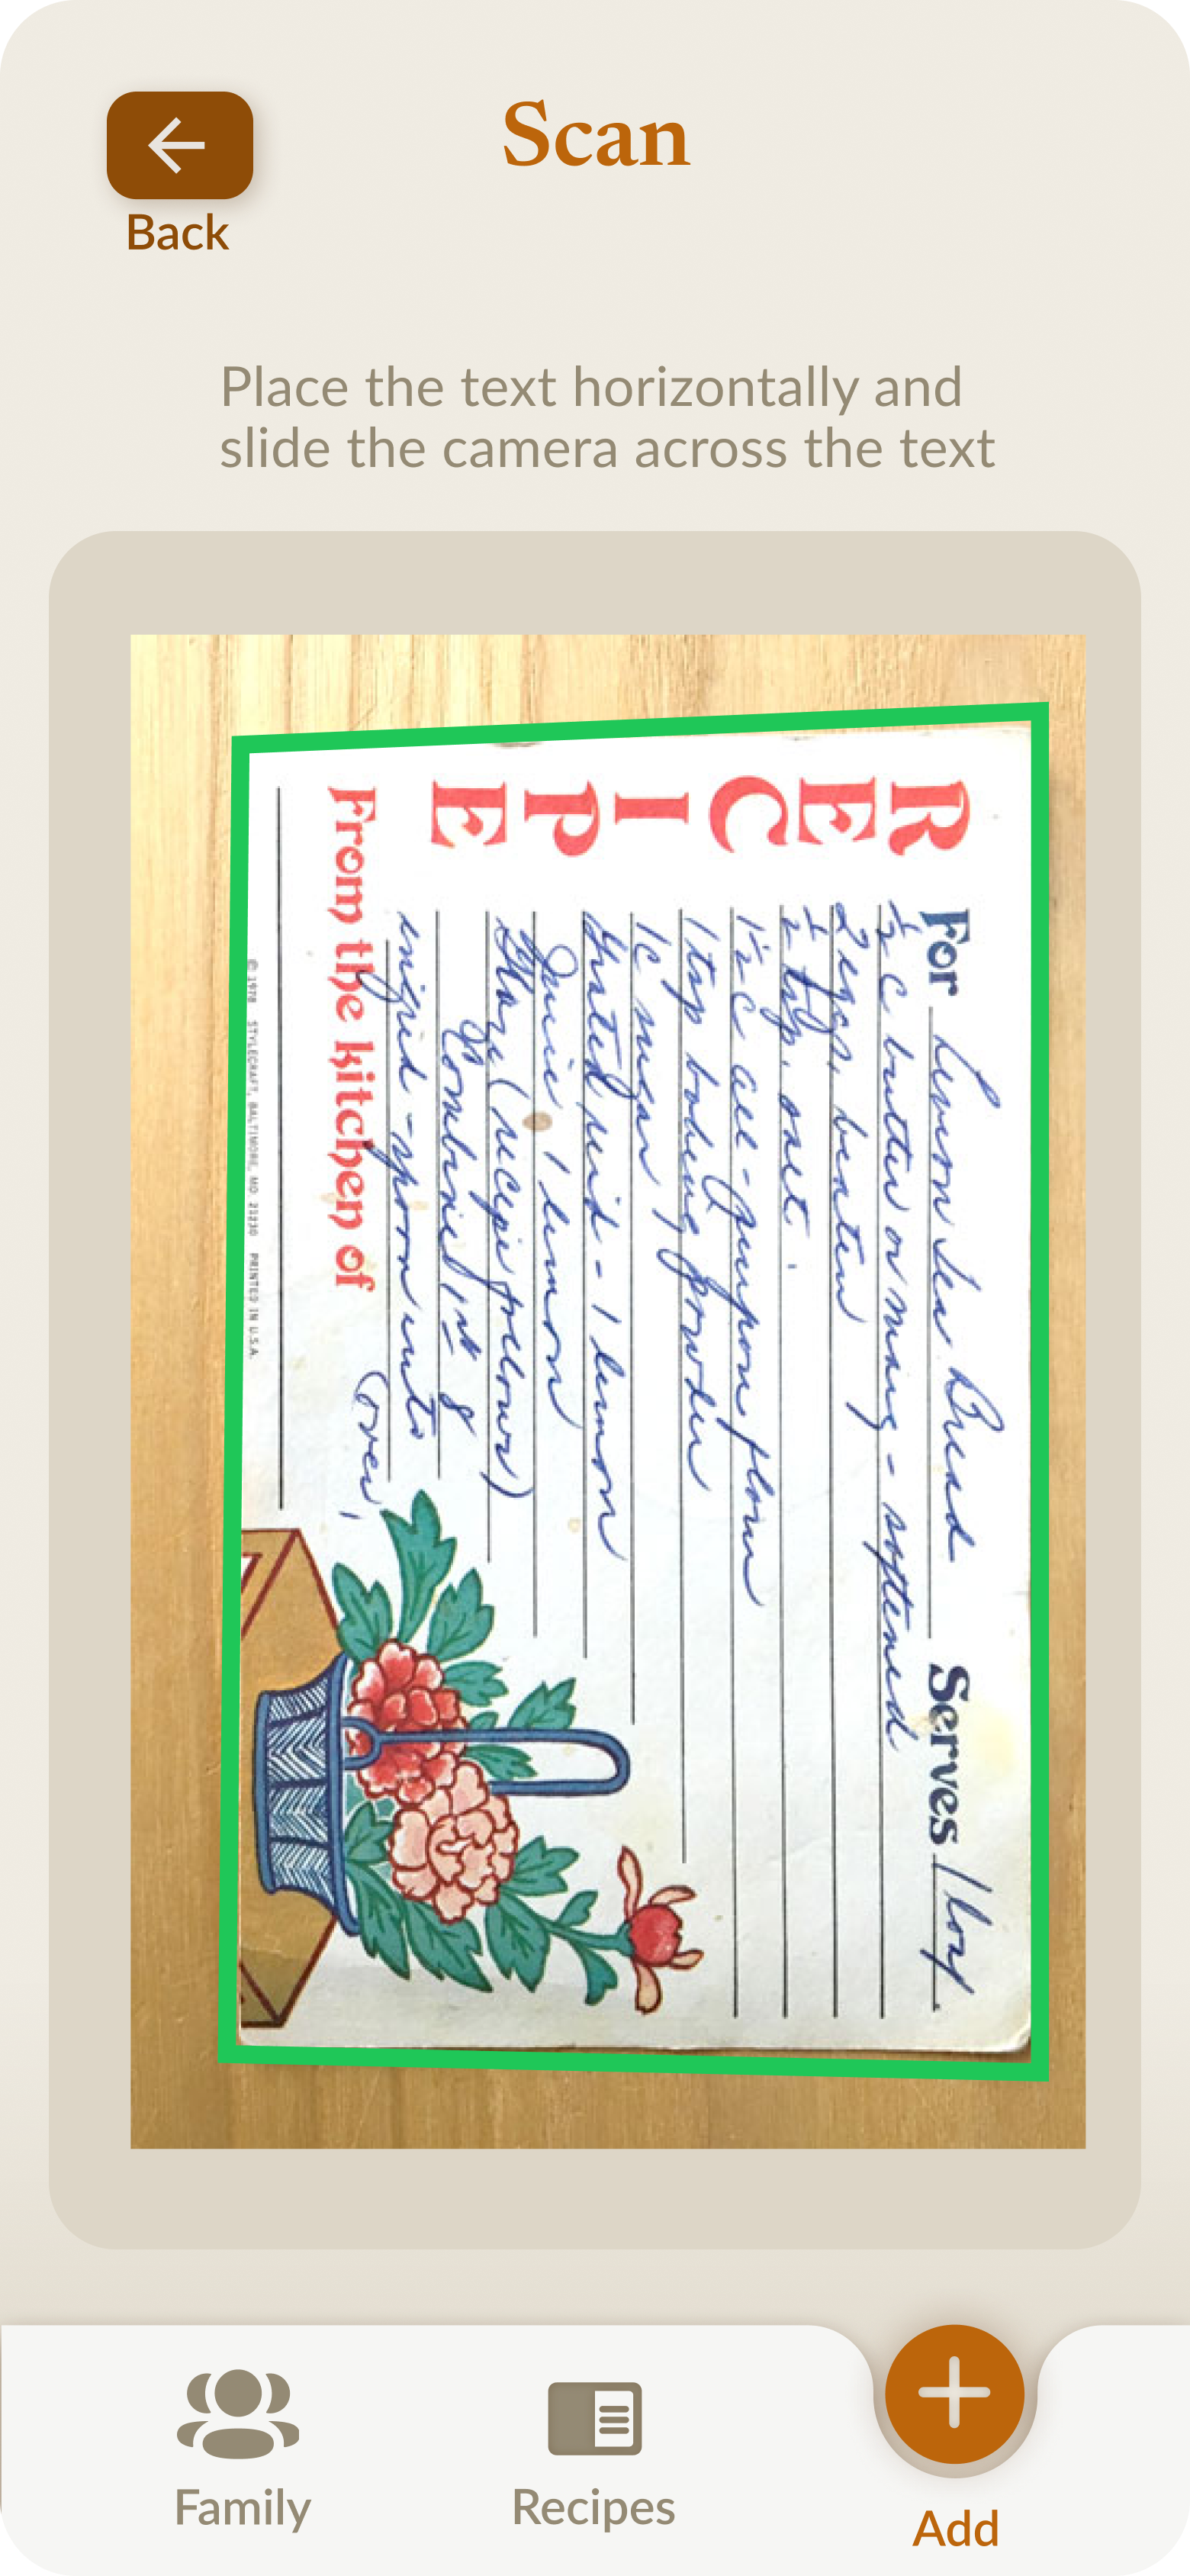 Scan
Back
Place the text horizontally and
slide the camera across the text
RECIPE
For Lemon Tea Bread Serves 1 loaf
½ c butter or marg - softened
2 eggs, beaten
½ tsp. salt
1½ c all-purpose flour
1 tsp baking powder
1c sugar
Grated rind - 1 lemon
Juice, 1 lemon
Glaze (recipe follows)
Combine 1st 8
ingred - spoon into
(over)
From the kitchen of
© 1978 STYLECRAFT, BALTIMORE, MD 21230 PRINTED IN U.S.A.
Family
Recipes
Add